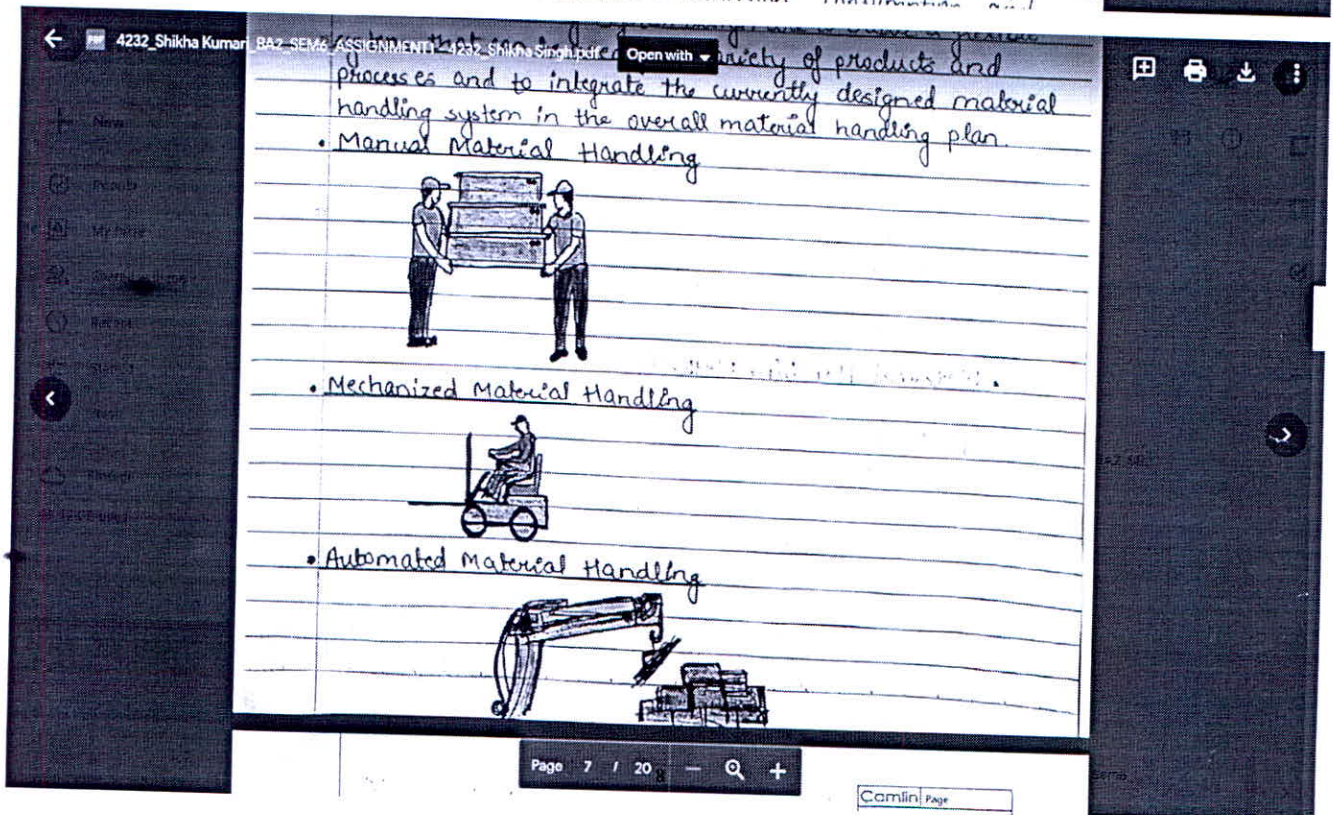 4232_Shikha Kumari_BA2_SEM6_ASSIGNMENT1_4232_Shikha Singh.pdf
Open with
variety of products and
processes and to integrate the currently designed material
handling system in the overall material handling plan.
• Manual Material Handling
• Mechanized Material Handling
• Automated Material Handling
Page 7 / 20
Camlin Page